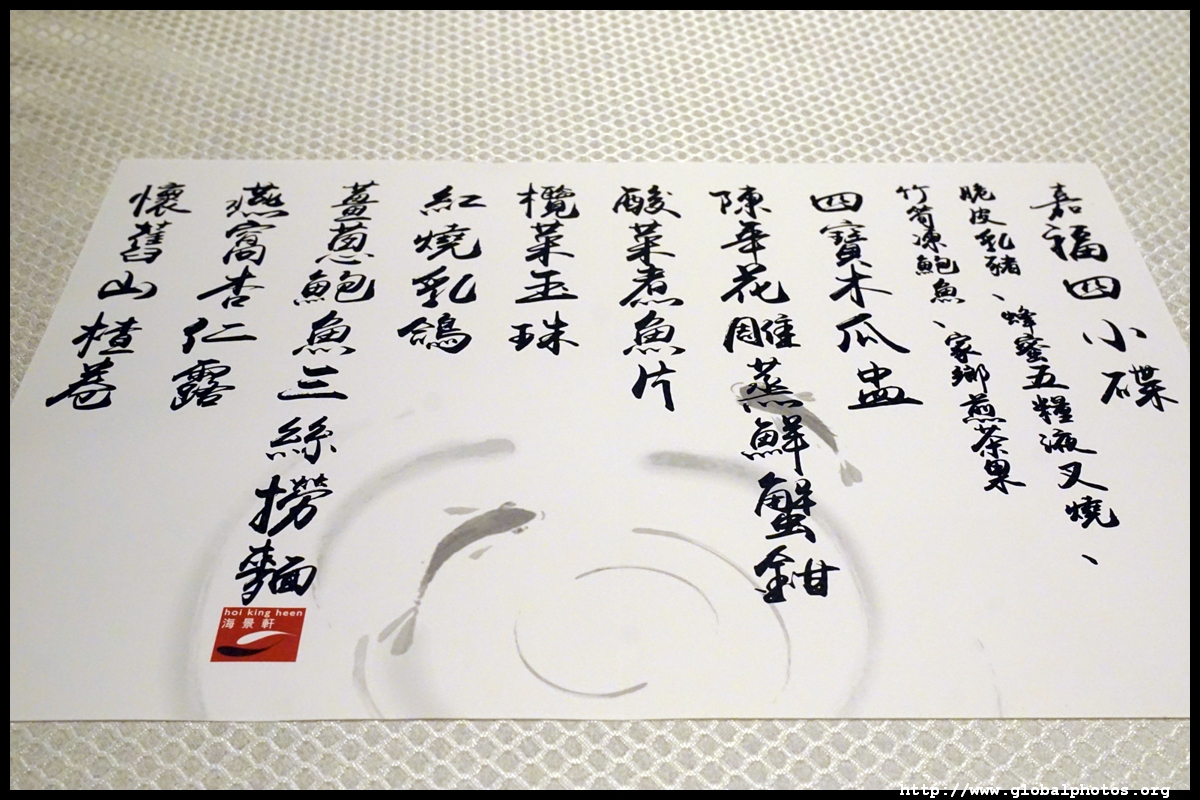 嘉福四小碟
脆皮乳豬、蜂蜜五糧液叉燒、
竹筍凍鮑魚、家鄉煎茶果
四寶木瓜盅
陳年花雕蒸鮮蟹鉗
酸菜煮魚片
欖菜玉珠
紅燒乳鴿
薑蔥鮑魚三絲撈麵
燕窩杏仁露
懷舊山楂卷
hoi king heen
海景軒
http://www.globalphotos.org